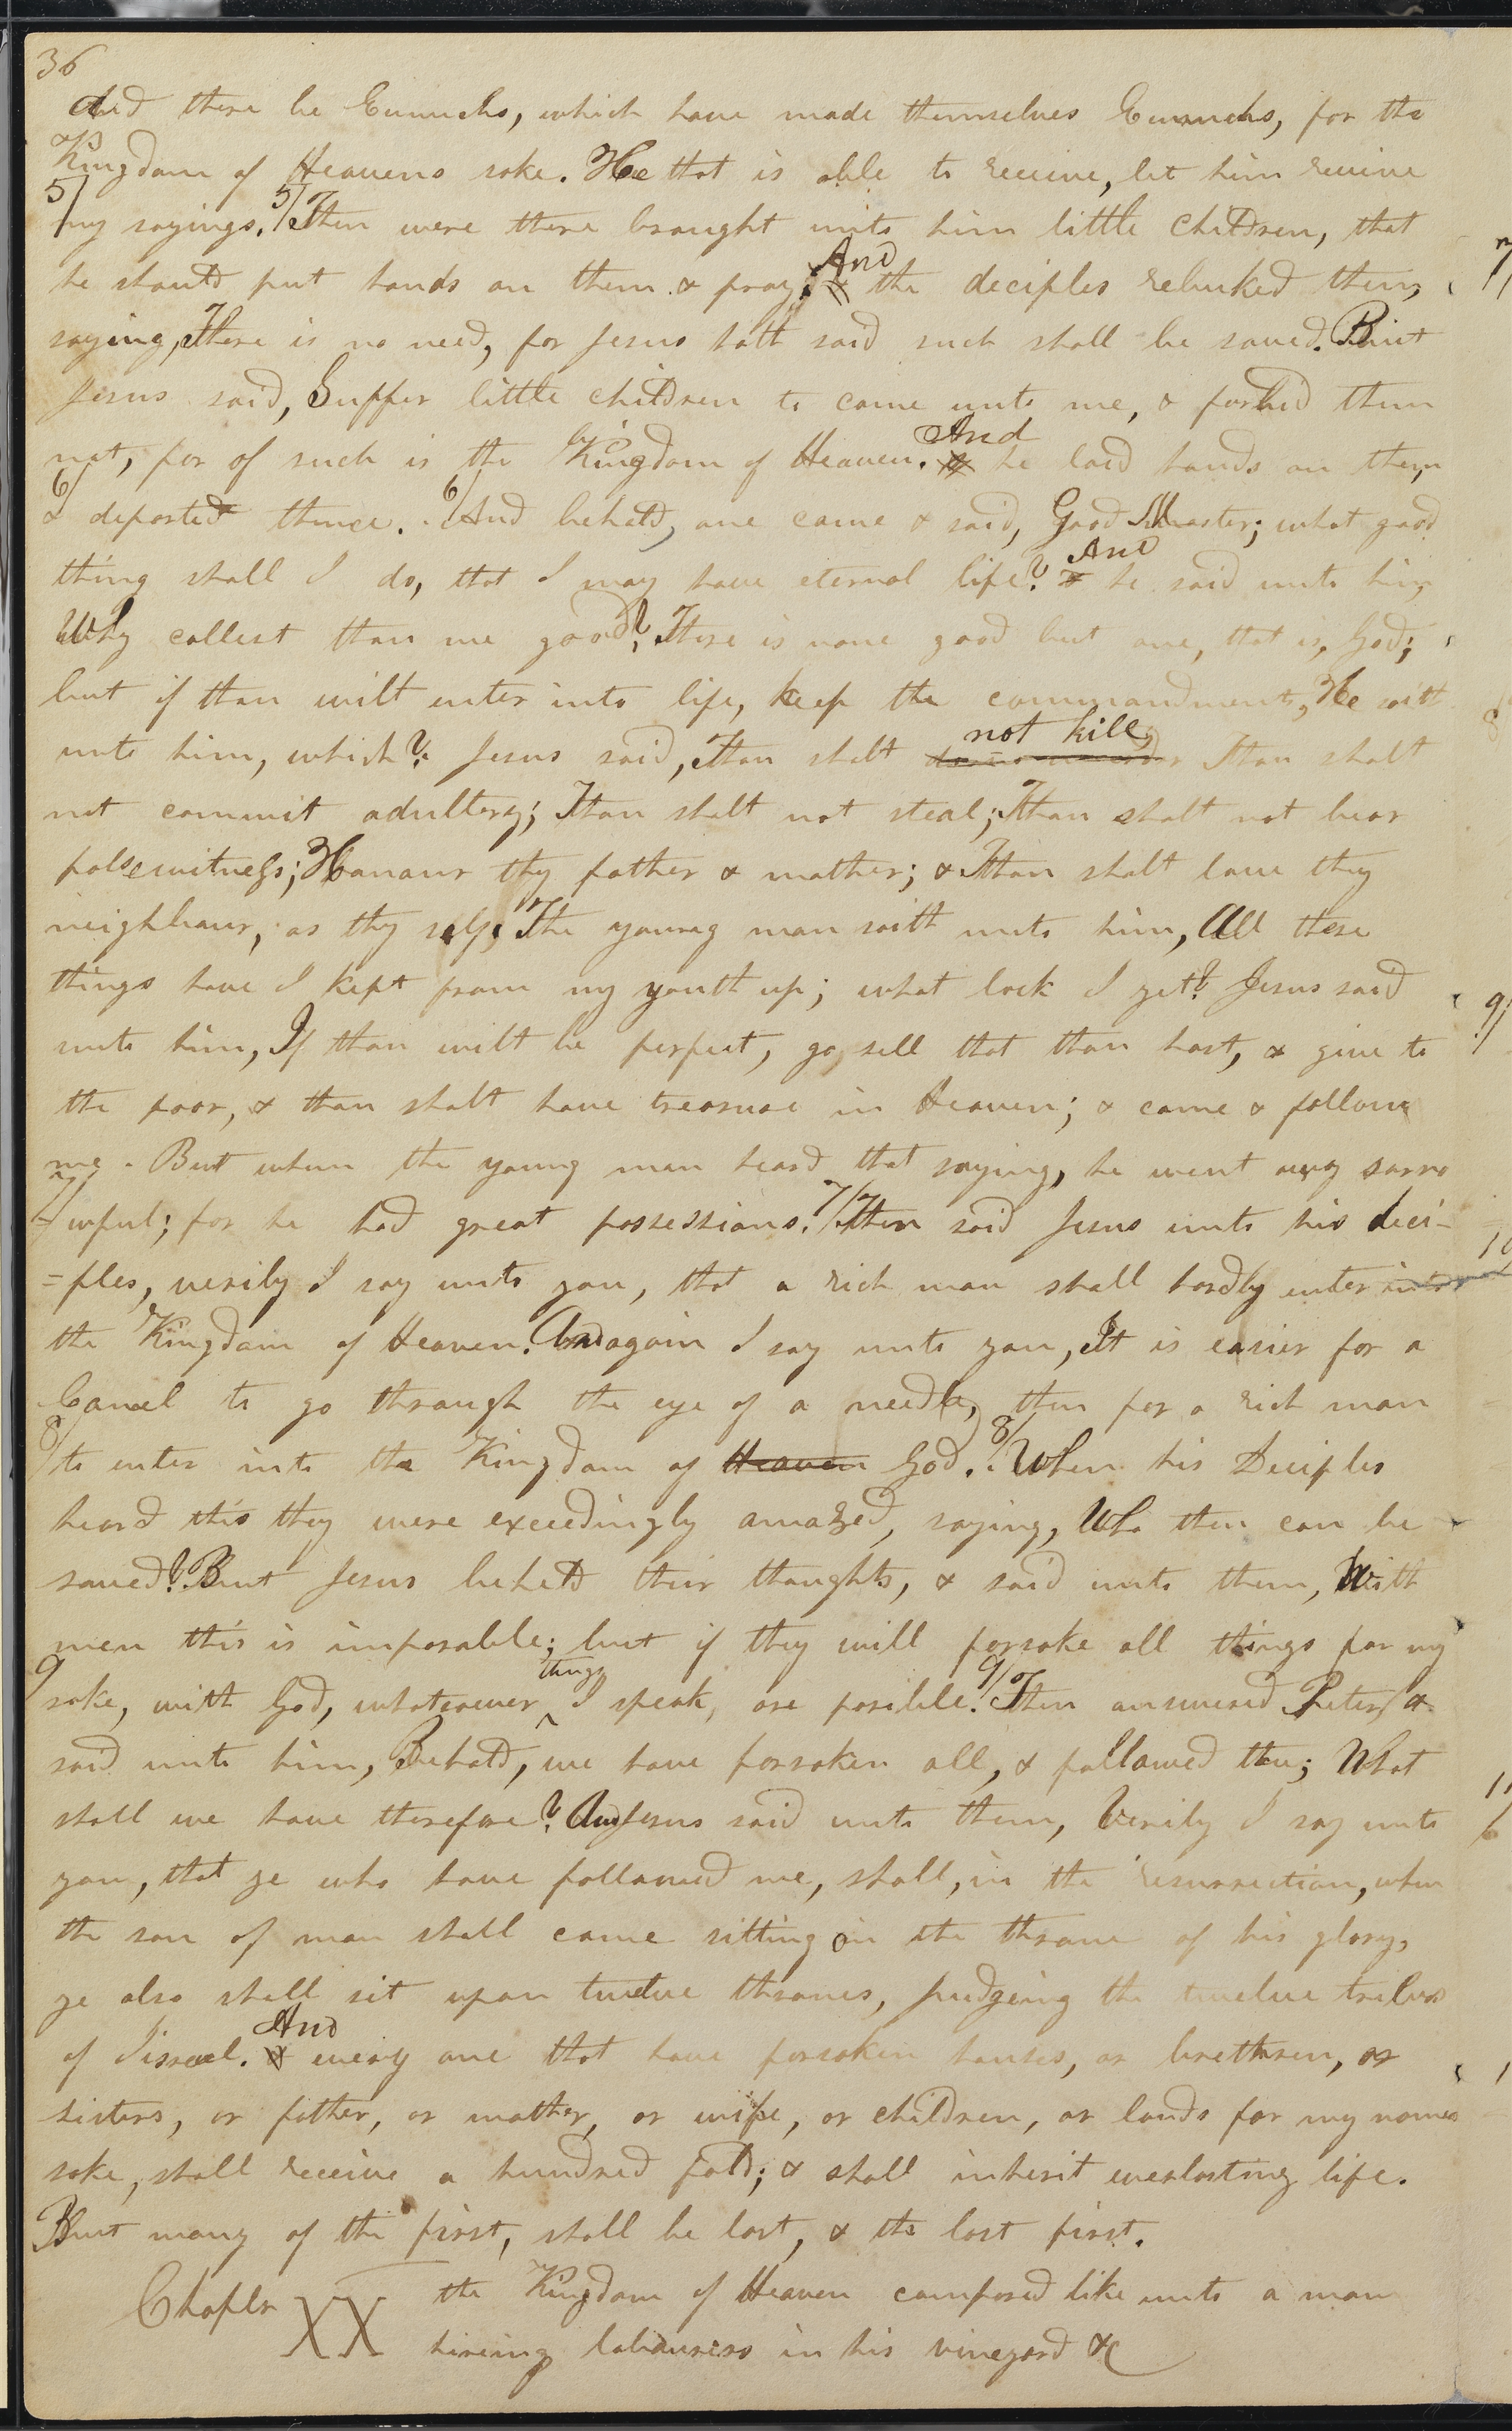 36
And there be Eunuchs, which have made themselves Eunuchs, for the
Kingdom of Heavens sake. He that is able to receive, let him receive
5/ my sayings. 5/ Then were there brought unto him little children, that
he should put hands on them & pray; And the deciples rebuked them,
saying, There is no need, for Jesus hath said such shall be saved. But
Jesus said, Suffer little children to come unto me, & forbid them
not, for of such is the Kingdom of Heaven. & And he laid hands on them
6/ & departed thence. 6/ And behold, one came & said, Good Master; what good
thing shall I do, that I may have eternal life? & And he said unto him,
Why callest thou me good? There is none good but one, that is, God;
but if thou wilt enter into life, keep the commandments, He saith
unto him, which? Jesus said, Thou shalt not kill, Thou shalt
not commit adultery; Thou shalt not steal; Thou shalt not bear
false witness; Honour thy father & mother; & Thou shalt love thy
neighbour, as thy self, The young man saith unto him, All these
things have I kept from my youth up; what lack I yet? Jesus said
unto him, If thou wilt be perfect, go, sell that thou hast, & give to
the poor, & thou shalt have treasure in Heaven; & come & follow
me. But when the young man heard that saying, he went away sorro
7/ =wful; for he had great possessions. 7/ Then said Jesus unto his deci-
=ples, verily I say unto you, that a rich man shall hardly enter into
the Kingdom of Heaven. And again I say unto you, It is easier for a
Camel to go through the eye of a needle, then for a rich man
8/ to enter into the Kingdom of Heaven God. 8/ When his Deciples
heard this they were exceedingly amazed, saying, Who then can be
saved? But Jesus beheld their thoughts, & said unto them, With
men this is imposable; but if they will forsake all things for my
9 sake, with God, whatsoever things I speak, are posible. 9/ Then answered Peter, &
said unto him, Behold, we have forsaken all, & followed thee; What
shall we have therefore? And Jesus said unto them, Verily I say unto
you, that ye who have followed me, shall, in the resurrection, when
the son of man shall come sitting on the throne of his glory,
ye also shall sit upon twelve thrones, judgeing the twelve tribes
of Iisrael. & And every one that have forsaken houses, or brethren, or
sisters, or father, or mother, or wife, or children, or lands for my names
sake, shall receive a hundred fold; & shall inherit everlasting life.
But many of the first, shall be last, & the last first.
Chapter XX the Kingdom of Heaven compared like unto a man
hireing labourers in his vineyard &c
7/
8
9/
10
11